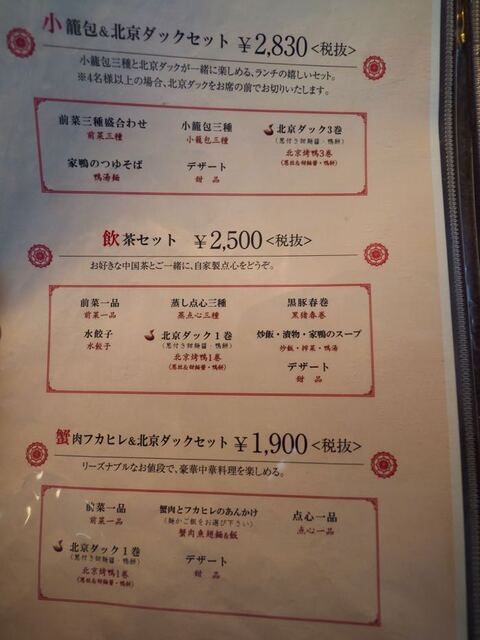 小籠包&北京ダックセット ¥2,830<税抜>
小籠包三種と北京ダックが一緒に楽しめる、ランチの嬉しいセット。
※4名様以上の場合、北京ダックをお席の前でお切りいたします。
前菜三種盛合わせ 小籠包三種 北京ダック3巻
前菜三種 小籠包三種 (葱付き甜麺醤・鴨餅)
北京烤鴨3巻
家鴨のつゆそば デザート (葱丝&甜麺醤・鴨餅)
鴨湯麺 甜品
飲茶セット ¥2,500<税抜>
お好きな中国茶とご一緒に、自家製点心をどうぞ。
前菜一品 蒸し点心三種 黒豚春巻
前菜一品 蒸点心三種 黒猪春巻
水餃子 北京ダック1巻 炒飯・漬物・家鴨のスープ
水餃子 (葱付き甜麺醤・鴨餅) 炒飯・搾菜・鴨湯
北京烤鴨1巻 デザート
(葱丝&甜麺醤・鴨餅) 甜品
蟹肉フカヒレ&北京ダックセット ¥1,900<税抜>
リーズナブルなお値段で、豪華中華料理を楽しめる。
前菜一品 蟹肉とフカヒレのあんかけ 点心一品
前菜一品 (麺かご飯をお選び下さい) 点心一品
蟹肉魚翅麺&飯
北京ダック1巻 デザート
(葱付き甜麺醤・鴨餅) 甜品
北京烤鴨1巻
(葱丝&甜麺醤・鴨餅)